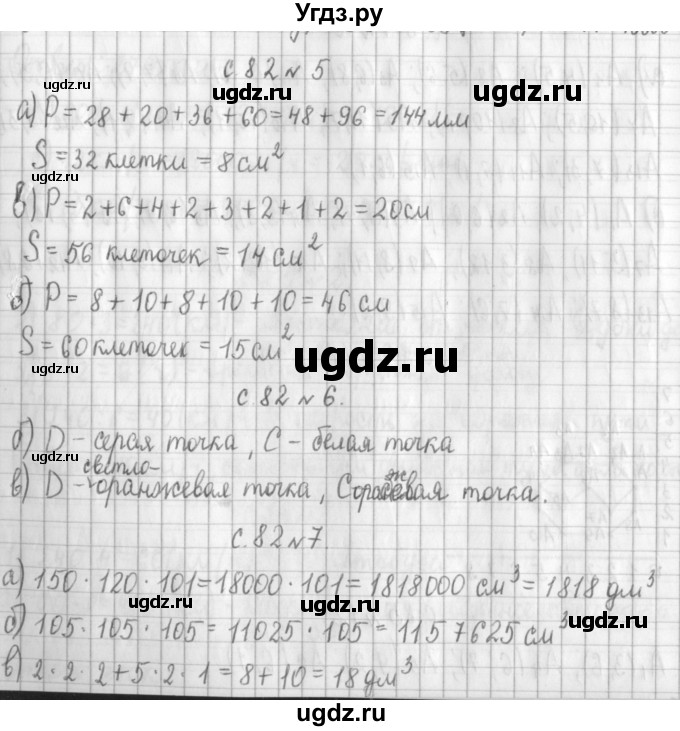 Угдз.ру
с 82 № 5
а) P = 28 + 20 + 36 + 60 = 48 + 96 = 144 мм
S = 32 клетки = 8 см²
в) P = 2 + 6 + 4 + 2 + 3 + 2 + 1 + 2 = 20 см
S = 56 клеточек = 14 см²
б) P = 8 + 10 + 8 + 10 + 10 = 46 см
S = 60 клеточек = 15 см²
с. 82 № 6.
б) D - серая точка, C - белая точка
в) D - светло-оранжевая точка, C оранжевая точка.
с. 82 № 7.
а) 150 · 120 · 101 = 18000 · 101 = 1818000 см³ = 1818 дм³
б) 105 · 105 · 105 = 11025 · 105 = 1157625 см³
в) 2 · 2 · 2 + 5 · 2 · 1 = 8 + 10 = 18 дм³
ugdz.ru
ugdz.ru
ugdz.ru
ugdz.ru
ugdz.ru
ugdz.ru
ugdz.ru
ugdz.ru
ugdz.ru
ugdz.ru
ugdz.ru
ugdz.ru
ugdz.ru
ugdz.ru